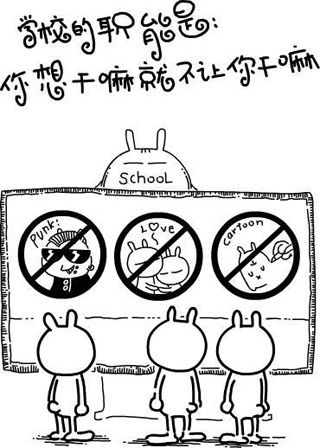 学校的职能是:
你想干嘛就不让你干嘛
SCHOOL
PUNK!
LOVE
Cartoon